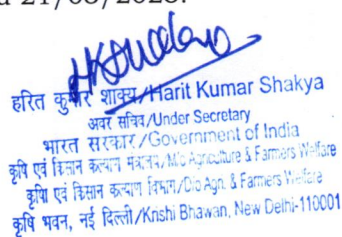 21/08/2023.
हरित कुमार शाक्य/Harit Kumar Shakya
अवर सचिव/Under Secretary
भारत सरकार/Government of India
कृषि एवं किसान कल्याण मंत्रालय/M/o Agriculture & Farmers Welfare
कृषि एवं किसान कल्याण विभाग/D/o Agn. & Farmers Welfare
कृषि भवन, नई दिल्ली/Krishi Bhawan, New Delhi-110001